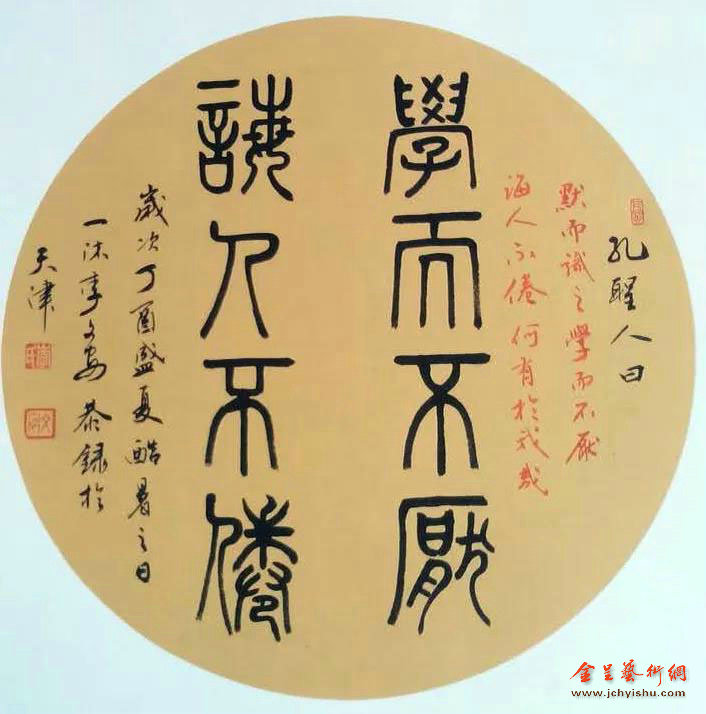 孔聖人曰
默而識之學而不厭
誨人不倦何有於我哉
學而不厭
誨人不倦
歲次丁酉盛夏酷暑之日
一沐李文安恭錄於
天津
金呈藝術網
www.jchyishu.com